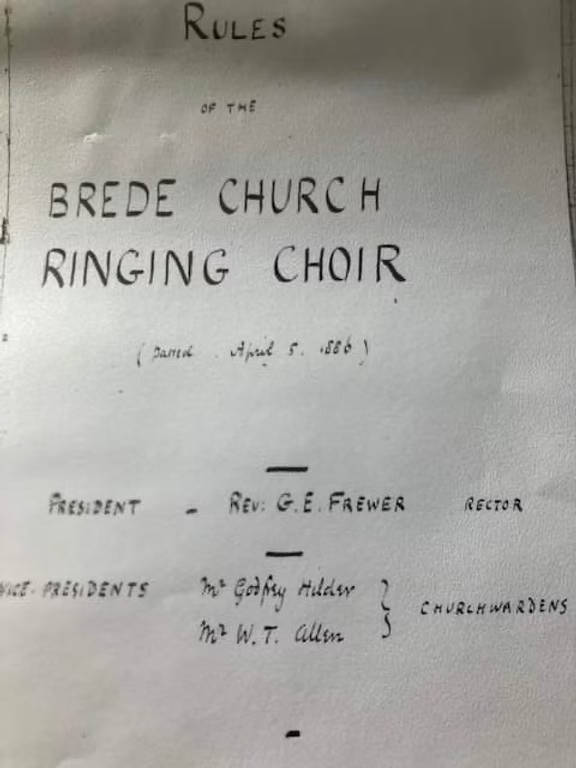 RULES
OF THE
BREDE CHURCH
RINGING CHOIR
( Passed . April 5. 1886 )
PRESIDENT - REV: G. E. FREWER RECTOR
VICE-PRESIDENTS Mr Godfrey Hilder } CHURCHWARDENS
Mr W. T. Allen